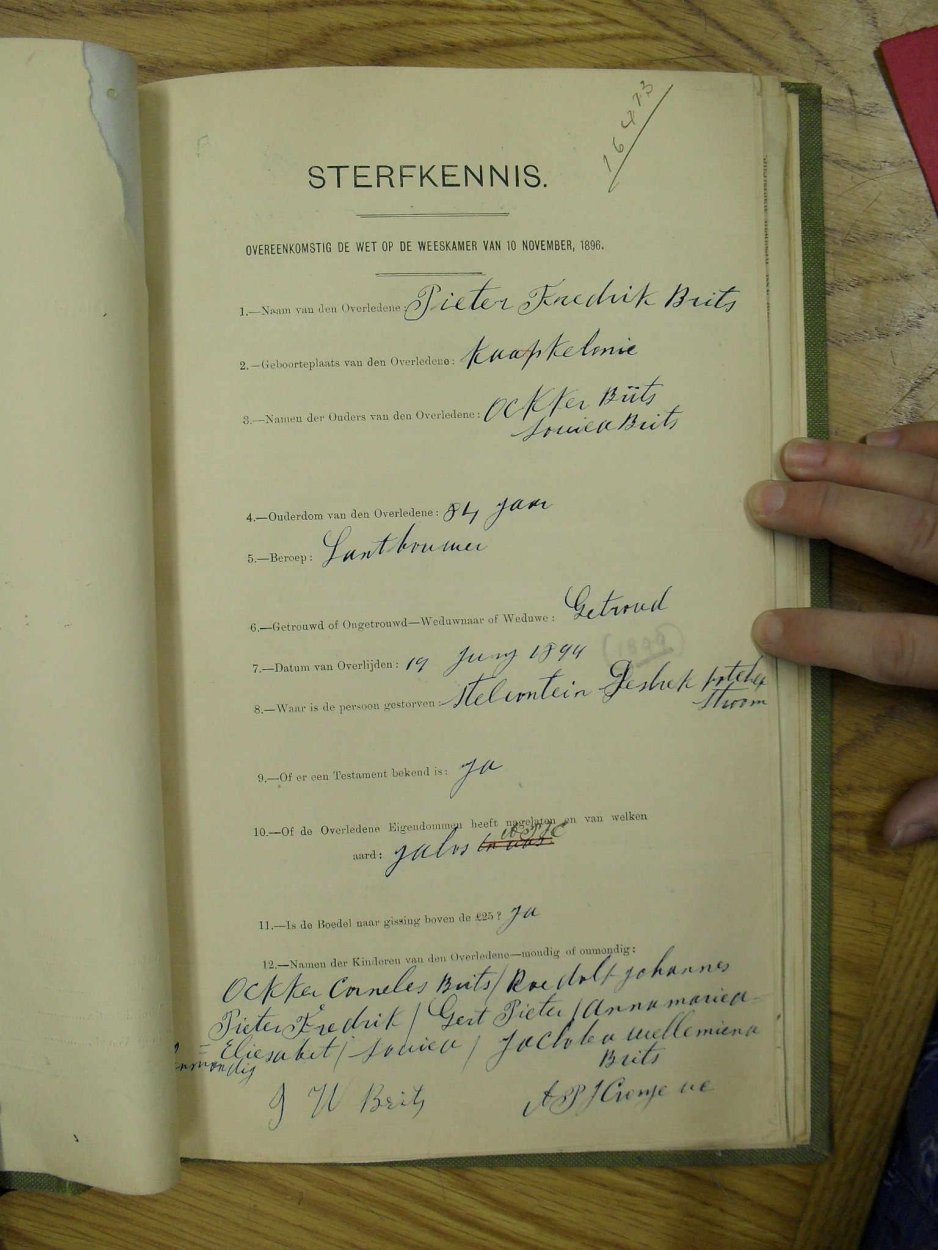 16473
STERFKENNIS.
OVEREENKOMSTIG DE WET OP DE WEESKAMER VAN 10 NOVEMBER, 1896.
1.—Naam van den Overledene: Pieter Fredrik Brits
2.—Geboorteplaats van den Overledene: Kaapkelonie
3.—Namen der Ouders van den Overledene: Ockker Brits
Louiea Brits
4.—Ouderdom van den Overledene: 84 jaar
5.—Beroep: Lantbouwer
6.—Getrouwd of Ongetrouwd—Weduwnaar of Weduwe: Getroud
7.—Datum van Overlijden: 19 Juny 1899 (1899)
8.—Waar is de persoon gestorven:
stroom
9.—Of er een Testament bekend is: ja
10.—Of de Overledene Eigendommen heeft nagelaten en van welken
aard:
11.—Is de Boedel naar gissing boven de £25? ja
12.—Namen der Kinderen van den Overledene—mondig of onmondig:
Ockker Corneles Brits / Roedolf Johannes
Pieter Fredrik / Gert Pieter / Anna mariea
= Eliesabet / Louiea / Jacoba wellemiena
onmondig Brits
J W Brits A P J Cronje